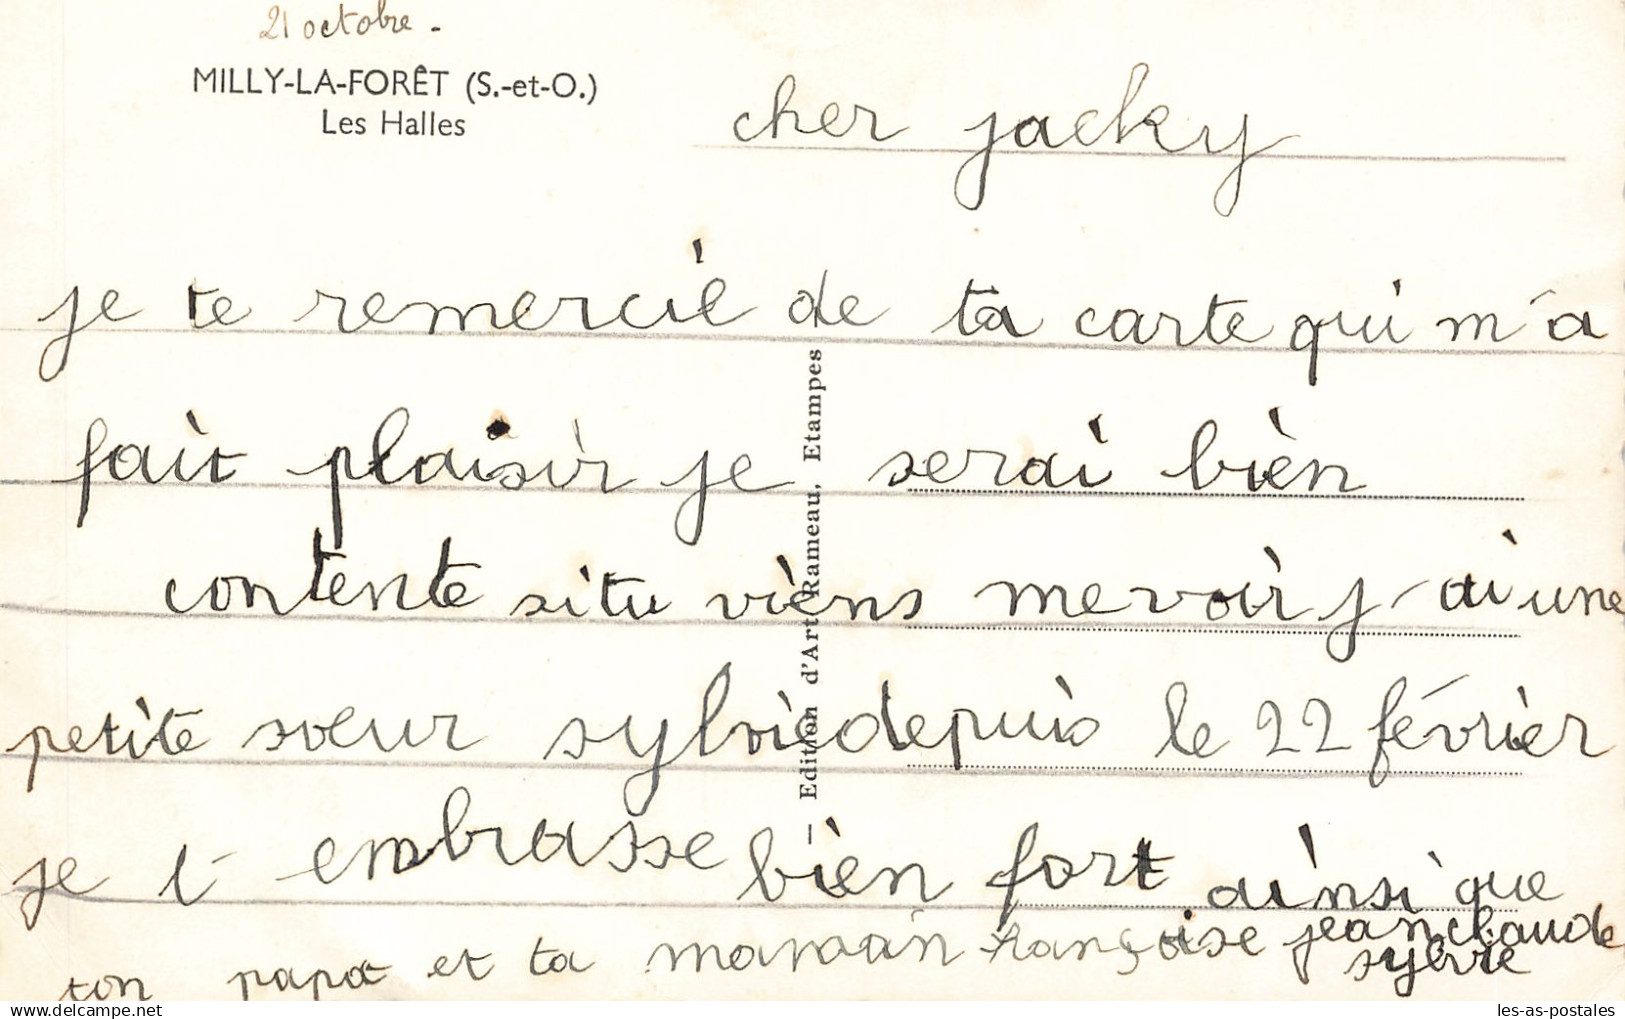 21 octobre -
MILLY-LA-FORÊT (S.-et-O.)
Les Halles
cher jacky
je te remercie de ta carte qui m'a
fait plaisir je serai bien
contente si tu viens me voir j'ai une
petite sœur sylvie depuis le 22 février
je t'embrasse bien fort ainsi que
ton papa et ta maman françoise jean claude
sylvie
— Edition d'Art Rameau, Etampes
delcampe.net
les-as-postales